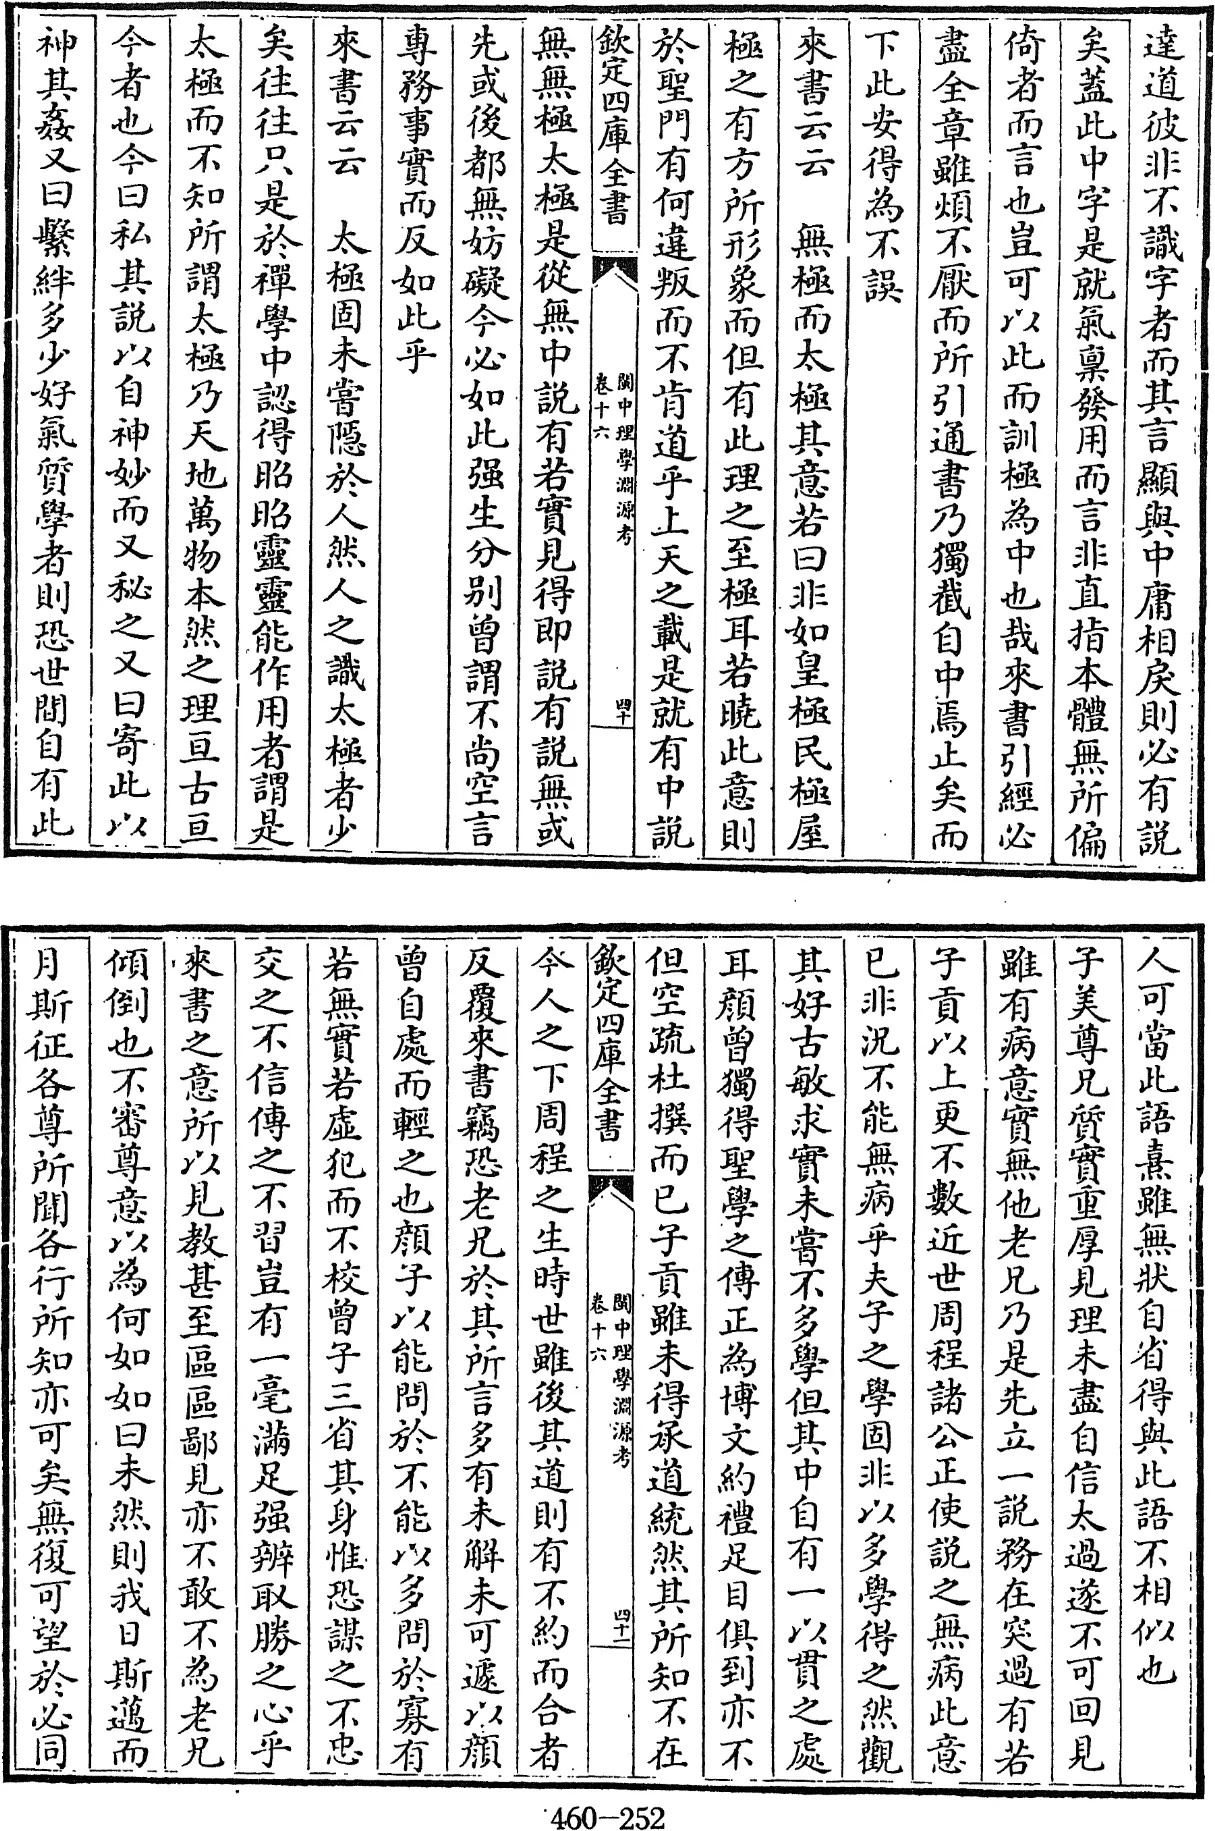 達道彼非不識字者而其言顯與中庸相戾則必有説
矣蓋此中字是就氣稟發用而言非直指本體無所偏
倚者而言也豈可以此而訓極為中也哉來書引經必
盡全章雖煩不厭而所引通書乃獨截自中焉止矣而
下此安得為不誤
來書云云　無極而太極其意若曰非如皇極民極屋
極之有方所形象而但有此理之至極耳若曉此意則
於聖門有何違叛而不肯道乎上天之載是就有中説
欽定四庫全書
閩中理學淵源考
卷十六
四十
無無極太極是從無中説有若實見得即説有説無或
先或後都無妨礙今必如此强生分别曾謂不尚空言
專務事實而反如此乎
來書云云　太極固未嘗隱於人然人之識太極者少
矣往往只是於禪學中認得昭昭靈靈能作用者謂是
太極而不知所謂太極乃天地萬物本然之理亘古亘
今者也今曰私其説以自神妙而又秘之又曰寄此以
神其姦又曰繫絆多少好氣質學者則恐世間自有此
人可當此語熹雖無狀自省得與此語不相似也
子美尊兄質實重厚見理未盡自信太過遂不可回見
雖有病意實無他老兄乃是先立一説務在突過有若
子貢以上更不數近世周程諸公正使説之無病此意
已非況不能無病乎夫子之學固非以多學得之然觀
其好古敏求實未嘗不多學但其中自有一以貫之處
耳顏曾獨得聖學之傳正為博文約禮足目俱到亦不
但空疏杜撰而已子貢雖未得承道統然其所知不在
欽定四庫全書
閩中理學淵源考
卷十六
四十一
今人之下周程之生時世雖後其道則有不約而合者
反覆來書竊恐老兄於其所言多有未解未可遽以顏
曾自處而輕之也顏子以能問於不能以多問於寡有
若無實若虛犯而不校曾子三省其身惟恐謀之不忠
交之不信傳之不習豈有一毫滿足强辨取勝之心乎
來書之意所以見教甚至區區鄙見亦不敢不為老兄
傾倒也不審尊意以為何如如曰未然則我日斯邁而
月斯征各尊所聞各行所知亦可矣無復可望於必同
460-252